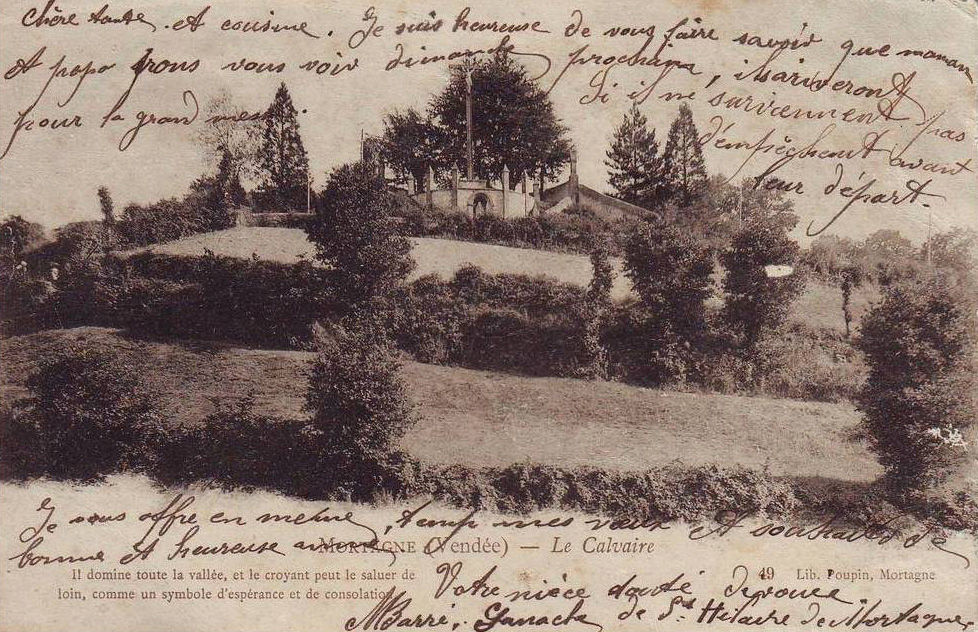 Chère tante. et cousine. Je suis heureuse de vous faire savoir que maman
et papa irons vous voir dimanche prochain, ils ariveront
pour la grand messe
Si il ne surviennent pas
d'empêchant avant
leur départ.
Je vous offre en meme temp mes voeux et souhaits de
bonne et heureuse année
MORTAGNE (Vendée) — Le Calvaire
Il domine toute la vallée, et le croyant peut le saluer de
loin, comme un symbole d'espérance et de consolation
49 Lib. Poupin, Mortagne
Votre nièce
MBarré. de St Hilaire de Mortagne